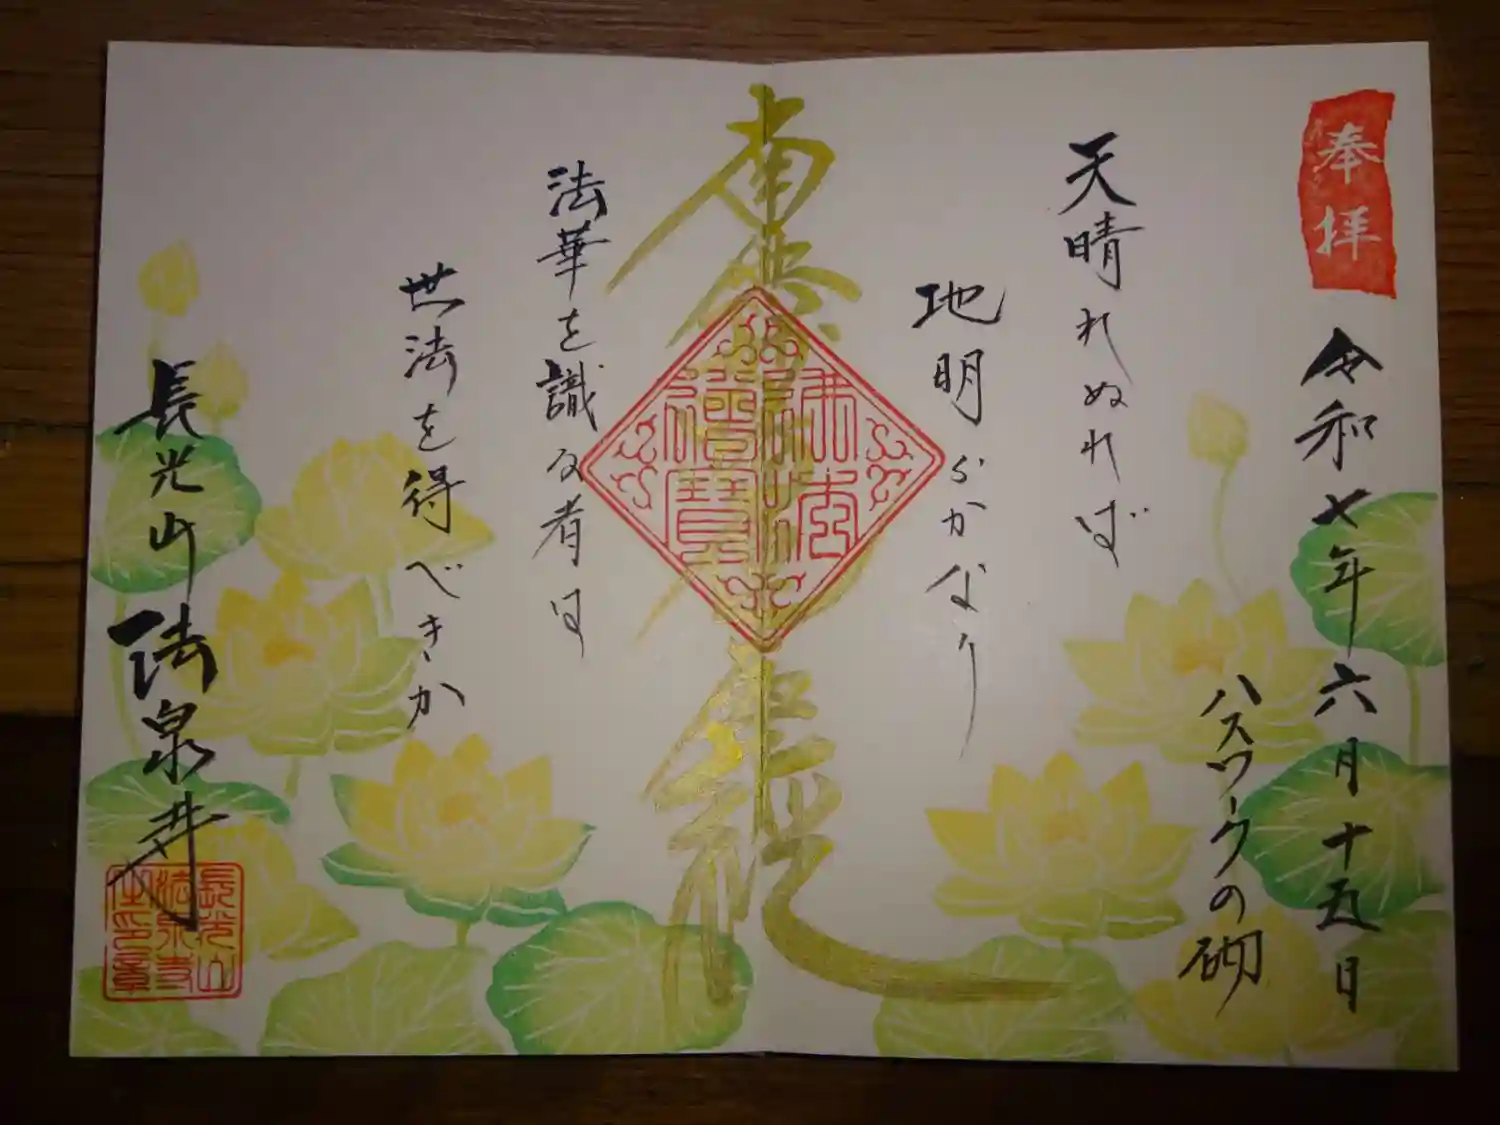 奉拝
令和七年六月十五日
ハスワークの砌
天晴れぬれば
地明らかなり
南無妙法蓮華経
佛法僧寶
法華を識る者は
世法を得べきか
長光山 法泉寺
長光山
法泉寺